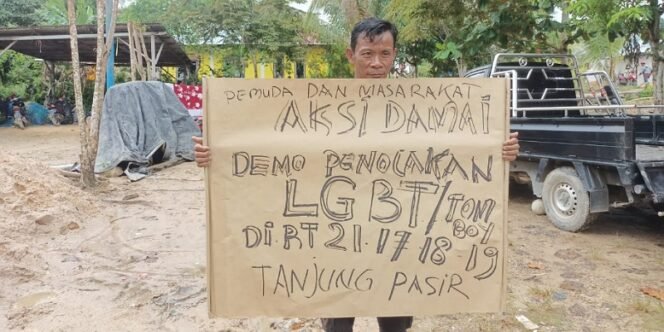 PEMUDA DAN MASARAKAT
AKSI DAMAI
DEMO PENOLAKAN
LGBT/TOM BOY
Di.RT 21.17.18.19
TANJUNG PASIR